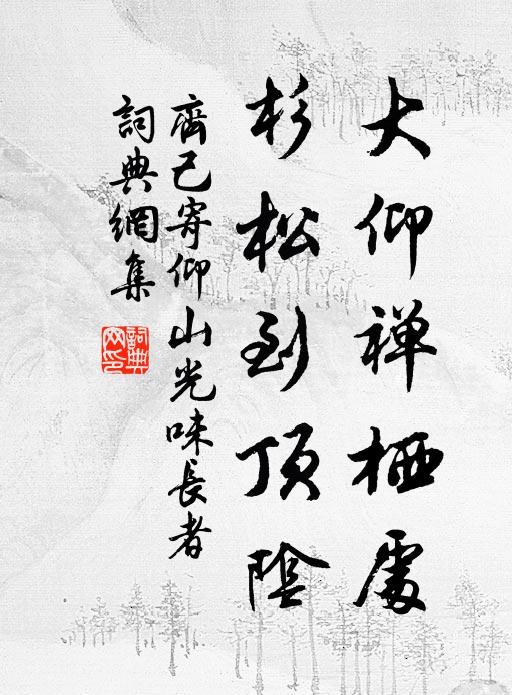 大仰禅栖處
杉松到頂陰
齊己寄仰山光味長者
詞典網集
詞典網印